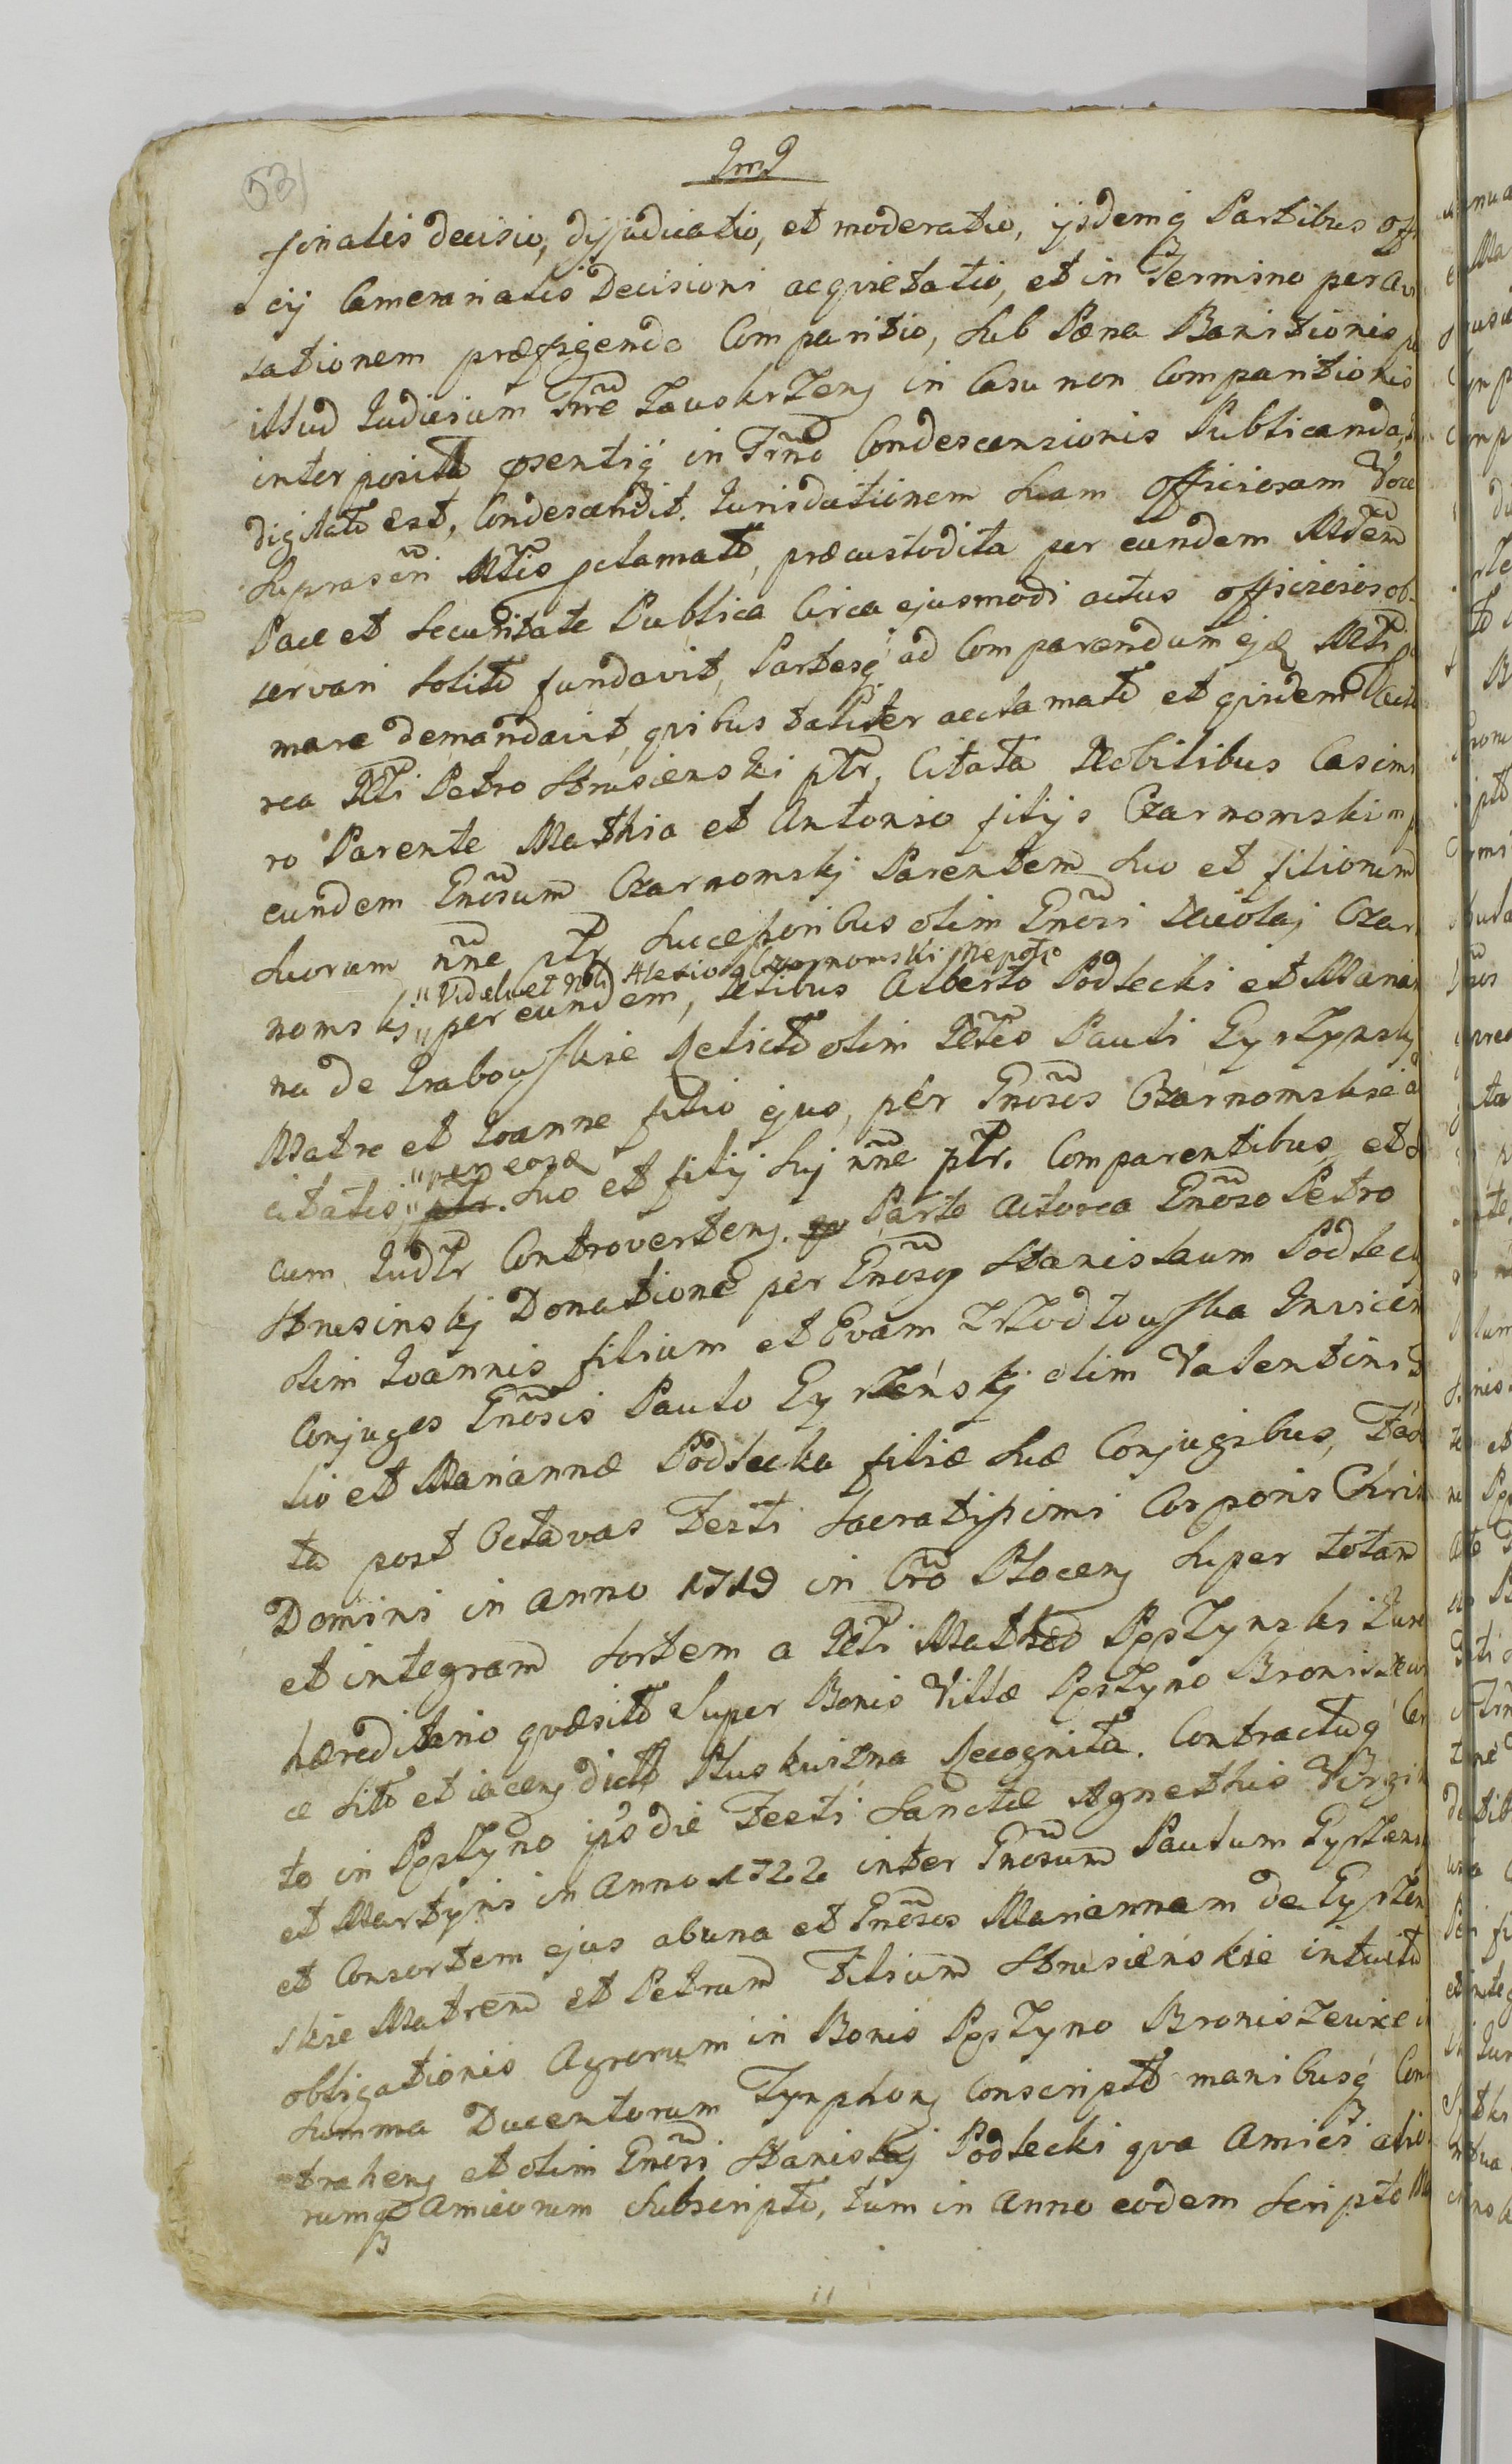 53
finalis decisio, dijjudicatio, et moderatio, ijsdemq Partibus Offi
cij Camerarialis Decisioni acqvietatio, et in Termino per
sationem præffigendo Comparitio, sub Pæna Banitionis
illud Judicium Trre Zauskrzeng in Casu non Comparitionis
interposita psentij in Trno Condescensionis Publicanda
digitato est, Condescendit. Jurisdictionem suam officiosam Voce
suprascri Mtis pclamato, præcustodita per eundem Mdem
Pace et securitate Publica Circa ejusmodi actus officiosos ob-
servari solito fundavit, Partesq ad Comparendum
mare demandavit, qvibus taliter acclamato et qvidem
rea Nti Petro Strusienski ptr, Citata Nobilibus Casimi
ro Parente Mathia et Antonio filijs Czarnomski
eundem Gnosum Czarnomskj Parentem suo et filiorum
suorum nne ptr Successoribus olim Gnosi Nicolaj Czar
"Videlicet Alexio Czarnomski Nepote
nomskj "per eundem, Ntibus Alberto Podlecki et Marian
na de Grabowskie Relicta olim Nti Pauli Gyrzynskj
Matre et Joanne filio ejus, per Gnosos Czarnomskie
"per eosd
citatis, ptr. suo et filij suj nne ptr. Comparentibus et
cum Judtr Controverteng. Parte Actorea Gnoso Petro
Strusinskj Donatione per Gnosos Stanislaum Podleckj
olim Joannis filium et Evam Invicem
Conjuges Gnosis Paulo Gyrzenskj olim Valentini
lio et Mariannæ Podlecka filiæ suæ Conjugibus,
ta post Octavas Festi Sacratissimi Corporis Chris
Domini in Anno 1719 in Cro Ploceng super totam
et integram sortem a Nti Mathia Ppszynski Jure
hæreditario qvæsita super Bonis Villæ Ppszyno Broniszewi
ce sito et jaceng dicto Pluskwizna Recognita. Contractuq
to in Ppszyno ipso die Festi Sanctæ Agnethis Virgin
et Martyris in Anno 1722 inter Gnosum Paulum Gyrzens
et Consortem ejus ab una et Gnosos Mariannam de Gyrzen
skie Matrem et Petrum Filium Strusienskie intuitu
obligationis Agrorum in Bonis Ppszyno Broniszewice
Summa Ducentorum Tynphong Conscripto manibusq Con
traheng et olim Gnosi Stanislaj Podlecki qva Amici alio
rumq Amicorum Subscripto, tum in anno eodem Scripto